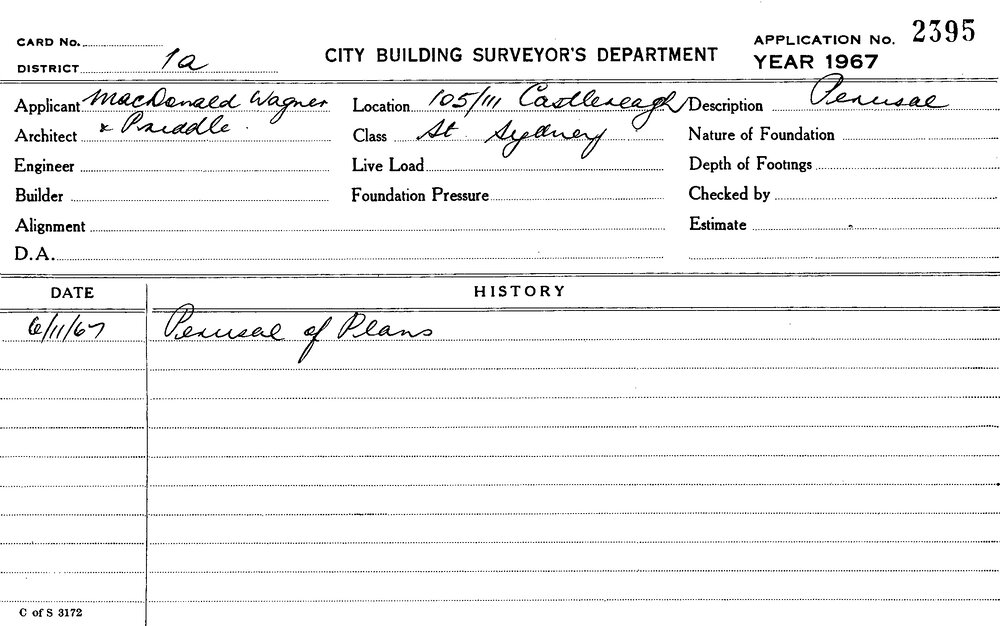 CARD No.
DISTRICT 1a
CITY BUILDING SURVEYOR'S DEPARTMENT
APPLICATION No. 2395
YEAR 1967
Applicant MacDonald Wagner Location 105/111 Castlereagh Description Perusal
Architect & Priddle. Class St Sydney Nature of Foundation
Engineer Live Load Depth of Footings
Builder Foundation Pressure Checked by
Alignment Estimate
D.A.
DATE HISTORY
6/11/67 Perusal of Plans
C of S 3172